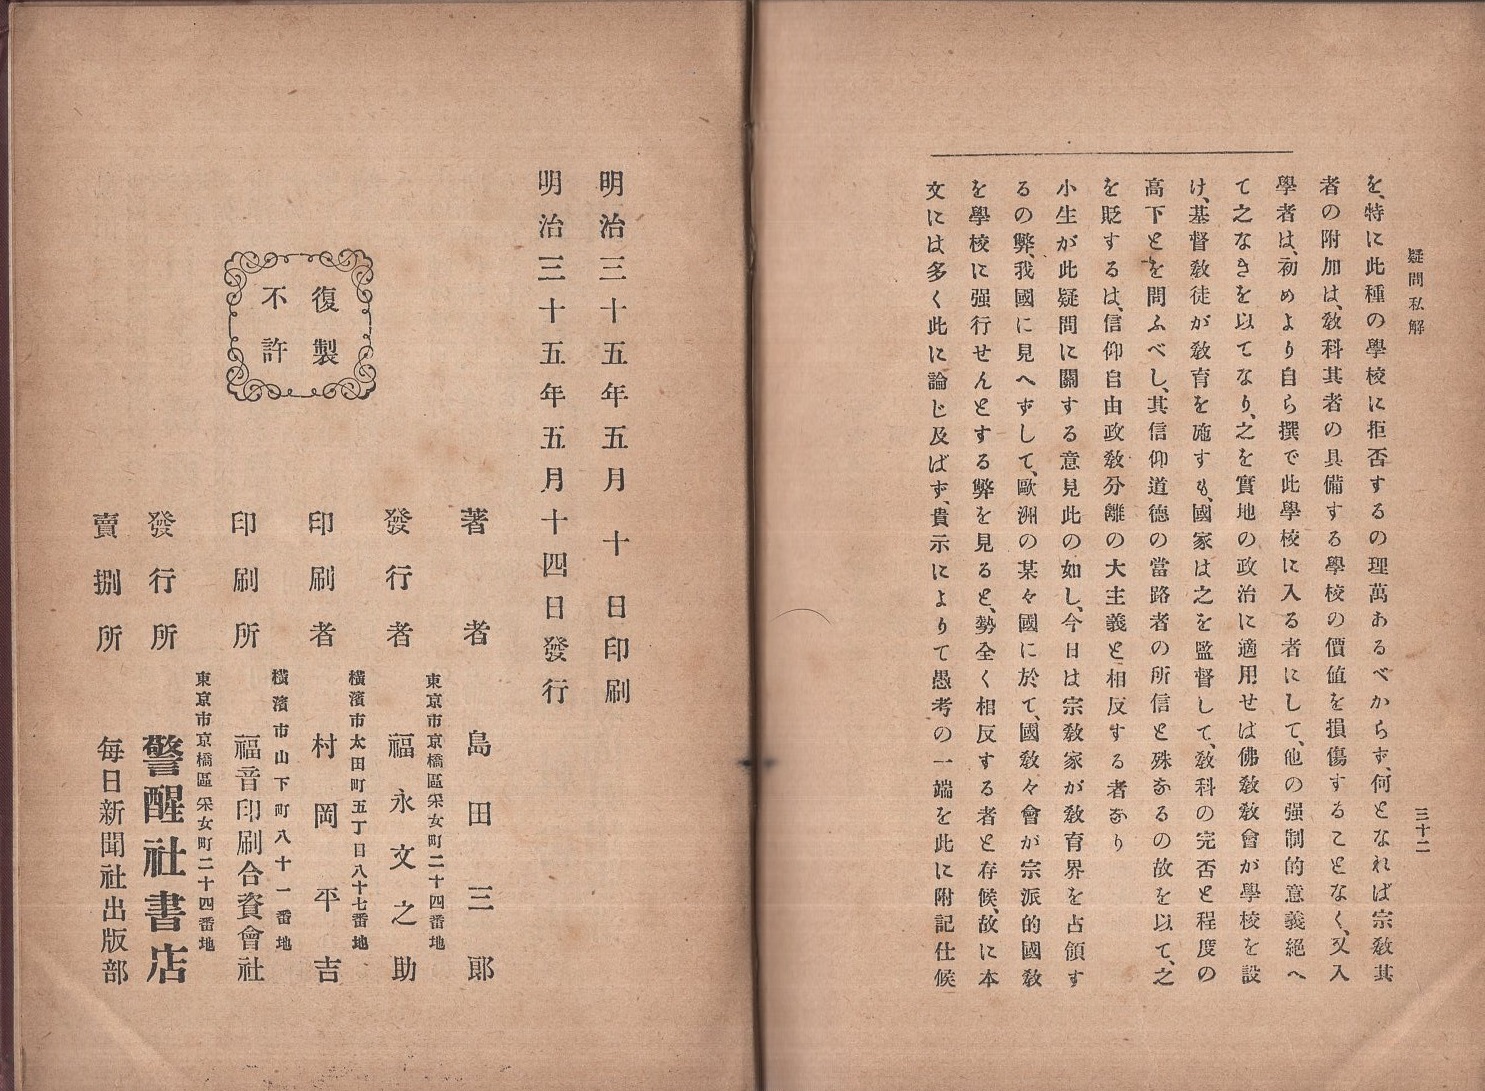 疑問私解
三十二
を、特に此種の學校に拒否するの理萬あるべからず、何となれば宗敎其
者の附加は、敎科其者の具備する學校の價値を損傷することなく、又入
學者は、初めより自ら撰で此學校に入る者にして、他の强制的意義絕へ
て之なきを以てなり、之を實地の政治に適用せは佛敎敎會が學校を設
け、基督敎徒が敎育を施すも、國家は之を監督して、敎科の完否と程度の
高下とを問ふべし、其信仰道德の當路者の所信と殊なるの故を以て、之
を貶するは、信仰自由政敎分離の大主義と相反する者なり
小生が此疑問に關する意見此の如し、今日は宗敎家が敎育界を占領す
るの弊、我國に見へずして、歐洲の某々國に於て、國敎々會が宗派的國敎
を學校に强行せんとする弊を見ると、勢全く相反する者と存候、故に本
文には多く此に論じ及ばず、貴示によりて愚考の一端を此に附記仕候
明治三十五年五月十日印刷
明治三十五年五月十四日發行
復製
不許
著者 島田三郞
東京市京橋區采女町二十四番地
發行者 福永文之助
橫濱市太田町五丁目八十七番地
印刷者 村岡平吉
橫濱市山下町八十一番地
印刷所 福音印刷合資會社
東京市京橋區采女町二十四番地
發行所 警醒社書店
賣捌所 每日新聞社出版部